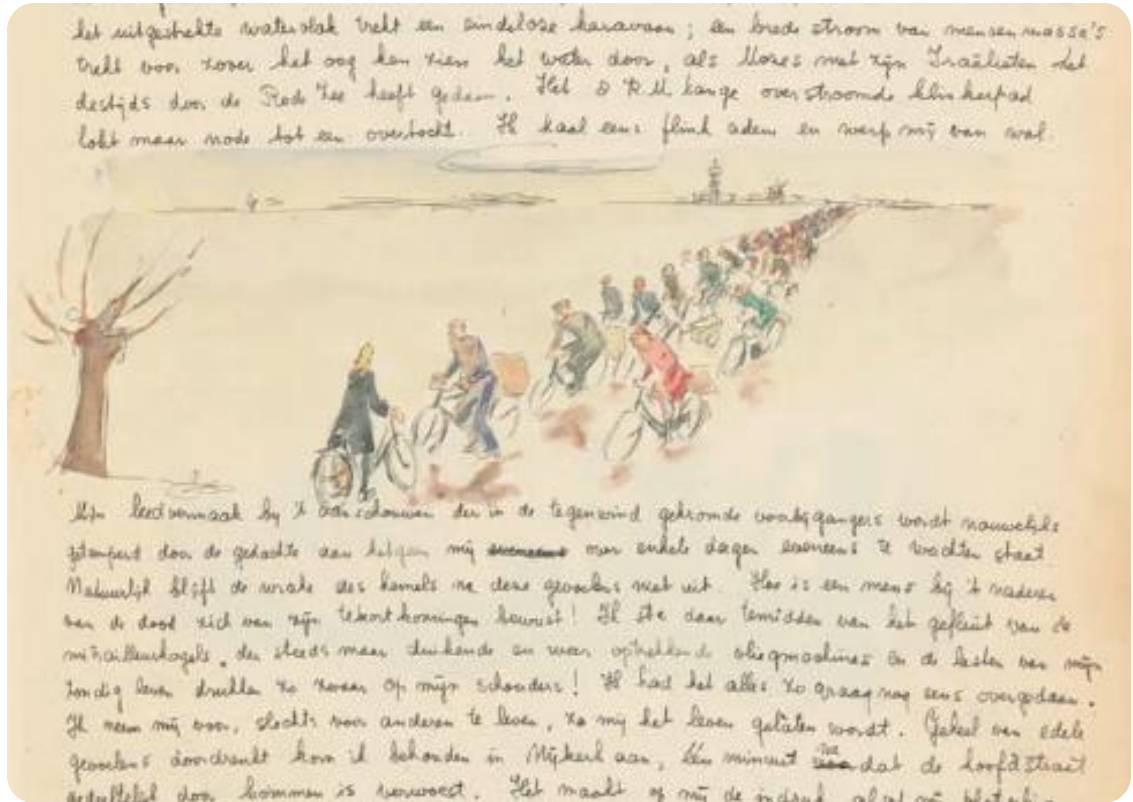 het uitgestrekte watervlak trekt een eindeloze karavaan; een brede stroom van mensenmassa's
trekt voor zover het oog kan zien het water door, als Mozes met zijn Israëlieten dat
destijds door de Rode Zee heeft gedaan. Het 8 K.M. lange overstroomde klinkerpad
lokt maar node tot een overtocht. Ik haal eens flink adem en werp mij van wal.
Mijn leedvermaak bij 't aanschouwen der in de tegenwind gekromde voortgangers wordt nauwelijks
getemperd door de gedachte aan hetgeen mij over enkele dagen eveneens te wachten staat.
Natuurlijk blijft de wrake des hemels na deze gevoelens niet uit. Hoe is een mens bij 't naderen
van de dood zich van zijn tekortkomingen bewust! Ik sta daar temidden van het gefluit van de
mitrailleurkogels, der steeds maar duikende en weer optrekkende vliegmachines en de lasten van mijn
zondig leven drukken zo zwaar op mijn schouders! Ik had het alles zo graag nog eens overgedaan.
Ik neem mij voor, slechts voor anderen te leven, zo mij het leven gelaten wordt. Geheel van edele
gevoelens doordrenkt kom ik behouden in Nijkerk aan, één minuut na dat de hoofdstraat
gedeeltelijk door bommen is verwoest. Het maakt op mij de indruk